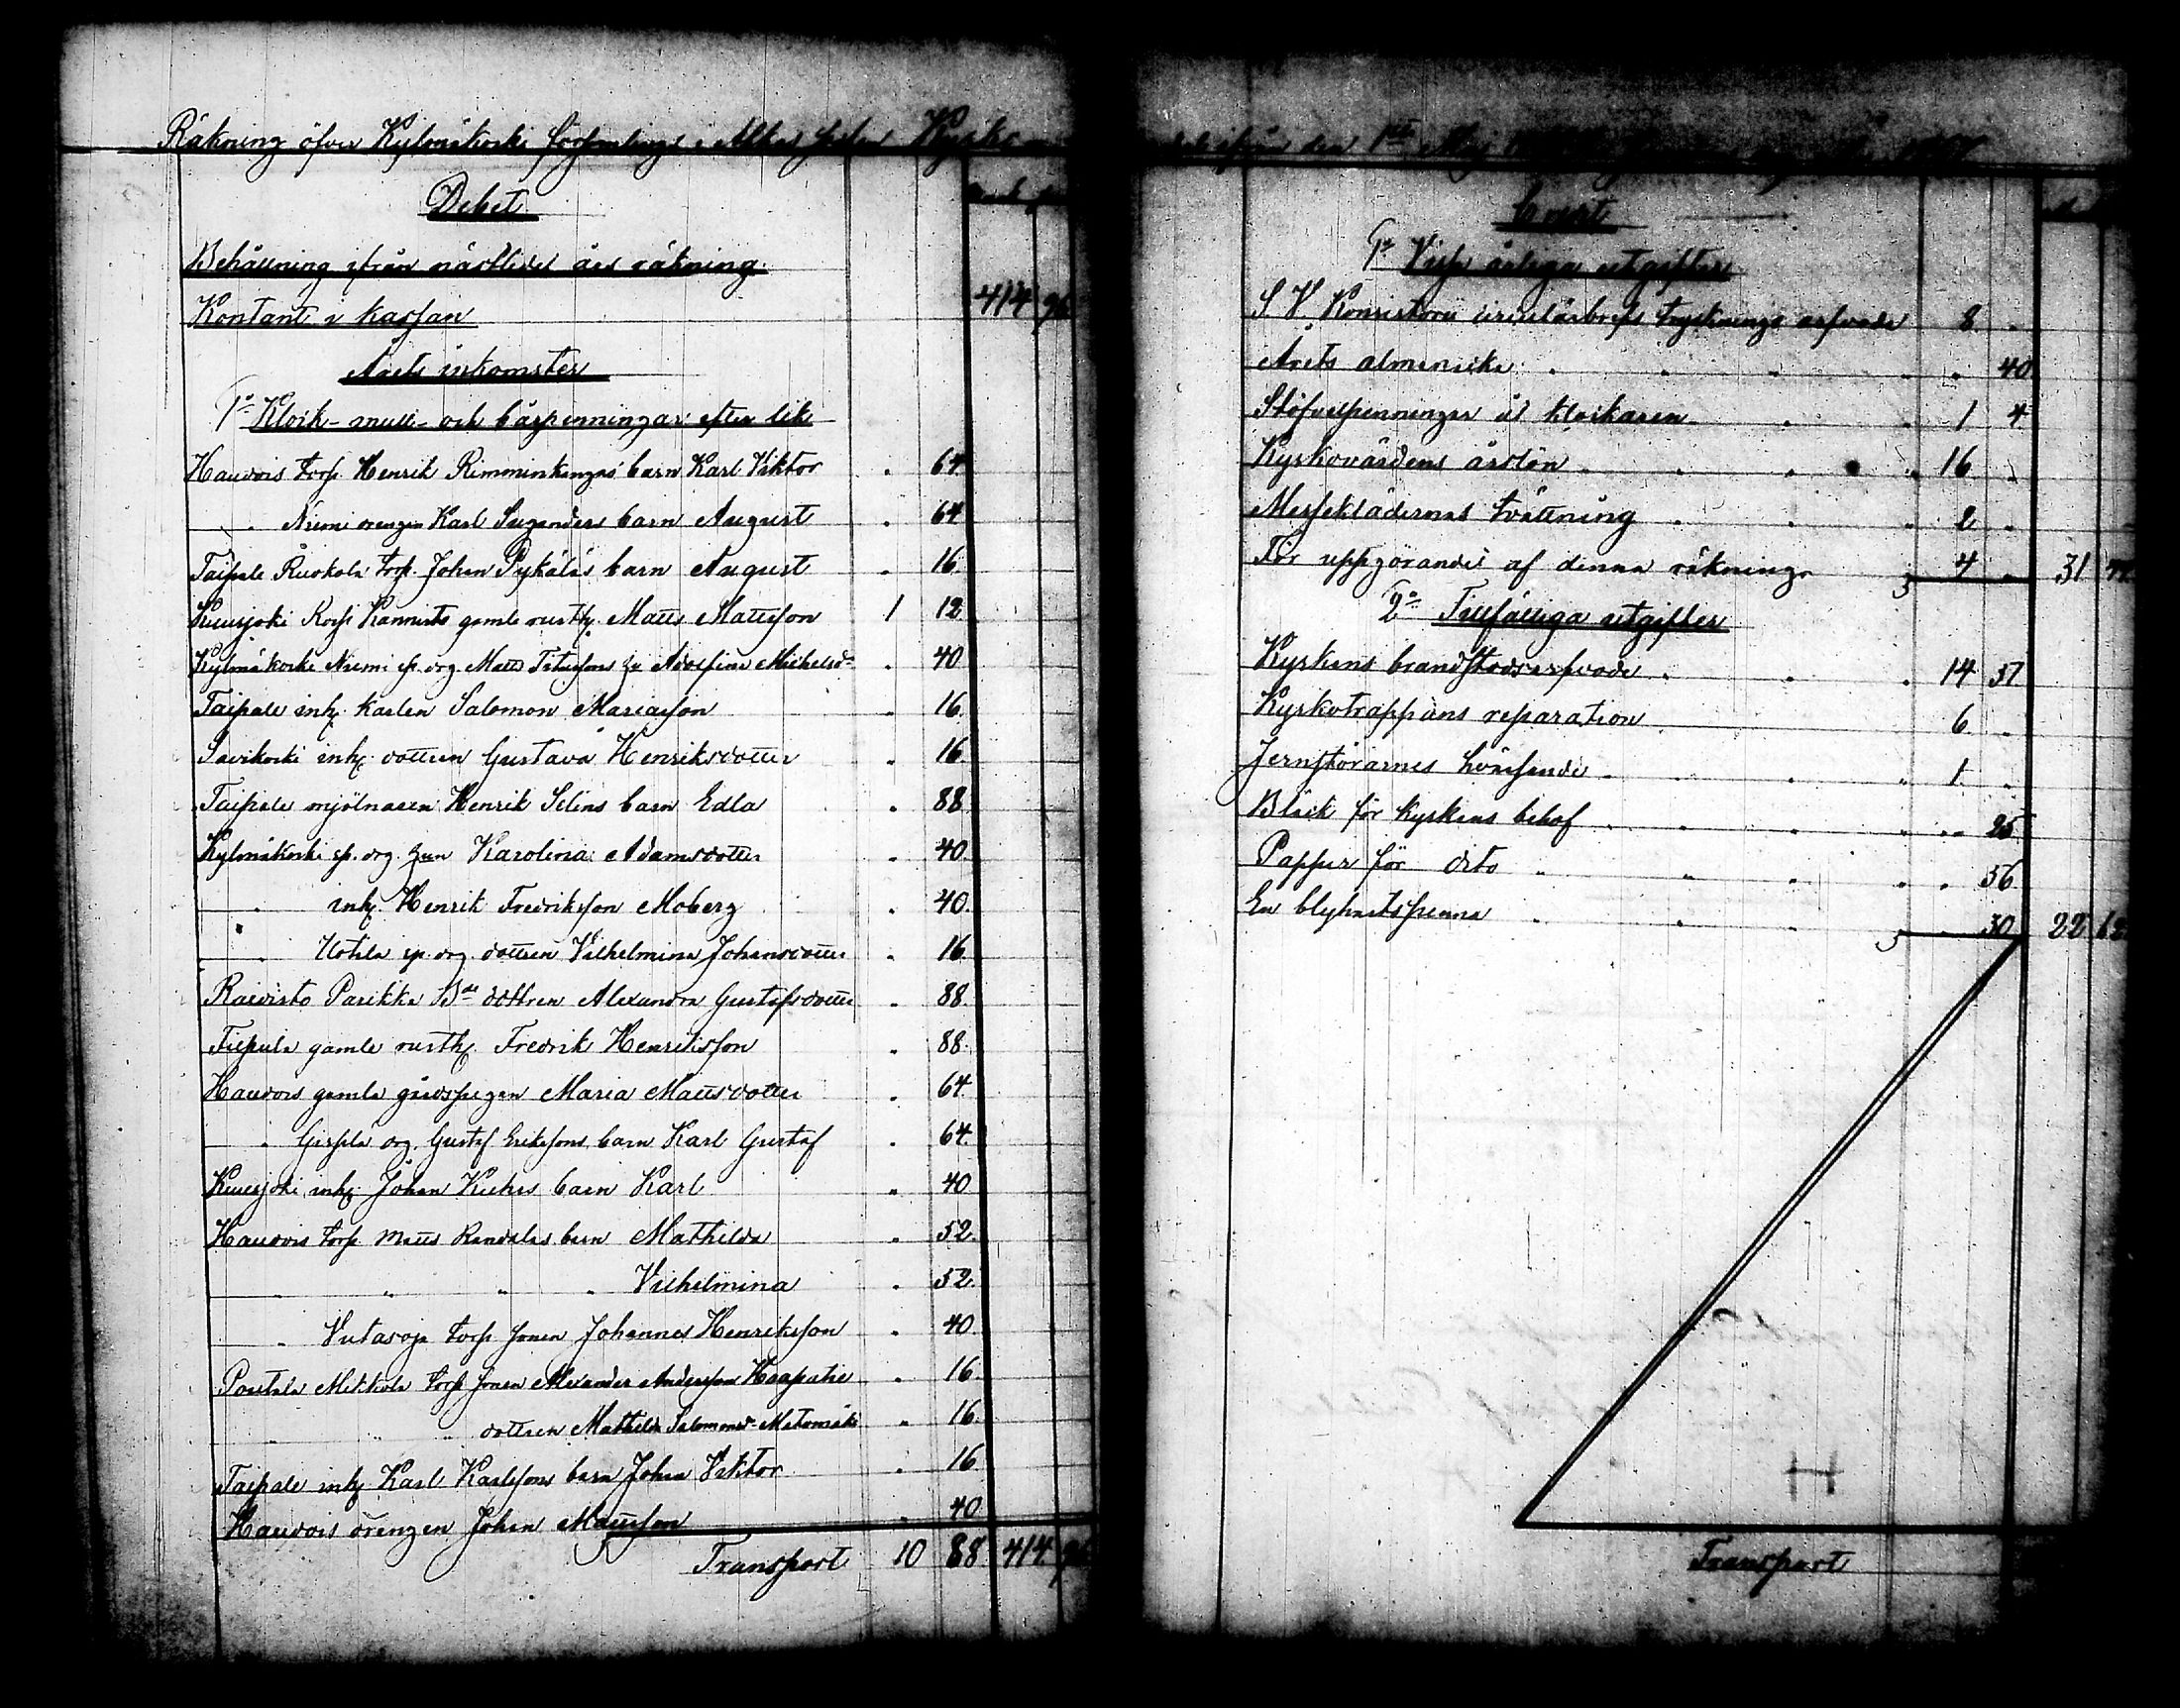 Räkning öfver Kylmäkoski församlings i Akkas socken Kyrko
Debet
Behållning ifrån nästlidet års räkning.
Kontant i kassan 414 96
Årets inkomster
1o Klock- mull- och bårpenningar efter lik
Hauvois torp. Henrik Rimminkangas barn Karl Viktor " 64
" Niemi drengen Karl Suganders barn August " 64
Taipale Ruokola torp. Johan Pykäläs barn August " 16
Kuusjoki Korpi Kannisto gamle rusth. Matts Mattsson 1 12
Kylmäkoski Niemi sp. drg. Matts Titussons h:u Adolfina Michelsdr " 40
Taipale inh. karlen Salomon Mariasson " 16
Savikoski inh. dottren Gustava Henriksdotter " 16
Taipale mjölnaren Henrik Selins barn Edla " 88
Kylmäkoski sp. drg. h:un Karolina Adamsdotter " 40
" inh. Henrik Fredriksson Moberg " 40
" Uotila sp. drg. dottren Vilhelmina Johansdotter " 16
Raivisto Parikka Bde dottren Alexandra Gustafsdotter " 88
Taipale gamle rusth. Fredrik Henriksson " 88
Hauvois gamla gårdspigan Maria Mattsdotter " 64
" Girsplä drg. Gustaf Erikssons barn Karl Gustaf " 64
Kuusjoki inh. Johan Kuhis barn Karl " 40
Hauvois torp. Matts Randalas barn Mathilda " 52
" " " " Vilhelmina " 52
" Vutasoja torp. sonen Johannes Henriksson " 40
Pontela Mikkola torp. sonen Alexander Andersson Haapatie " 16
" " " dottren Mathilda Salomonsdr Metsmäki " 16
Taipale inh. Karl Karlssons barn Johan Viktor " 16
Hauvois drengen Johan Mattsson " 40
Transport 10 88 414 96
ifrån den 1ste Maj
Credit
1o Vissa årliga utgifter
S V. Konsistorii cirkulärbrefs trycknings arfvode 8 "
Årets almanacka " " 40
Stöfvelpenningar åt klockaren 1 4
Kyrkovärdens årslön 16 "
Messeklädernas tvättning 2 "
För uppgörandet af denna räkning 4 " 31 44
2o Tillfälliga utgifter
Kyrkans brandstodsarfvode 14 51
Kyrkotrappans reparation 6 "
Jernstörarnes hvässande 1 "
Bläck för kyrkans behof " 25
Papper för dito " 56
En blyhartspenna " 30 22 62
Transport